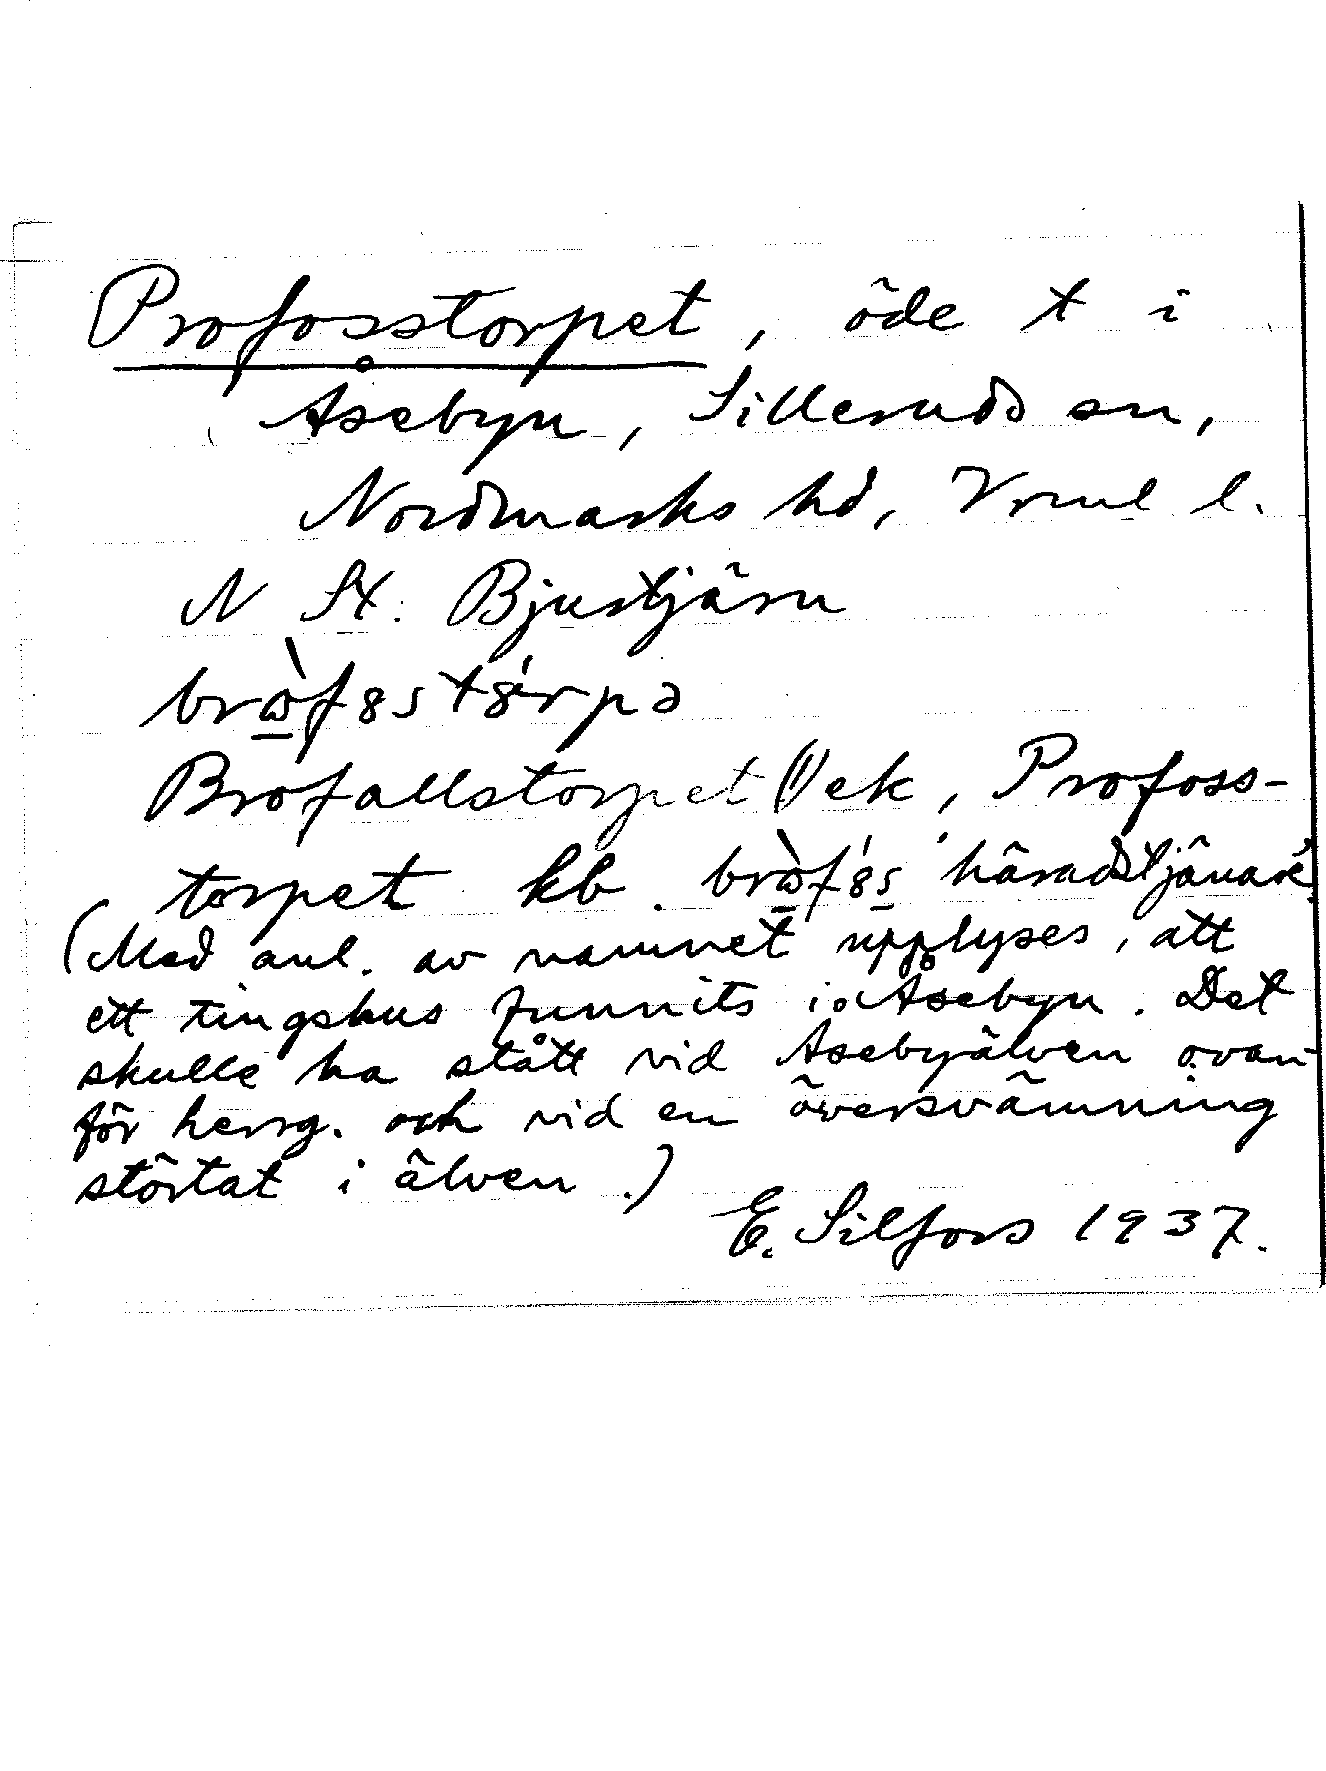 Profosstorpet, öde t i
Åsebyn, Silleruds sn,
Nordmarks hd, Vrml l.
N St. Bjustjärn
Brofallstorpet () ek, Profoss-
torpet kb. 'häradstjänare'
(Med anl. av namnet upplyses, att
ett tingshus funnits i Åsebyn. Det
skulle ha stått vid Åsebyälven ovan-
för herrg. och vid en översvämning
störtat i älven.)
E. Silfors 1937.